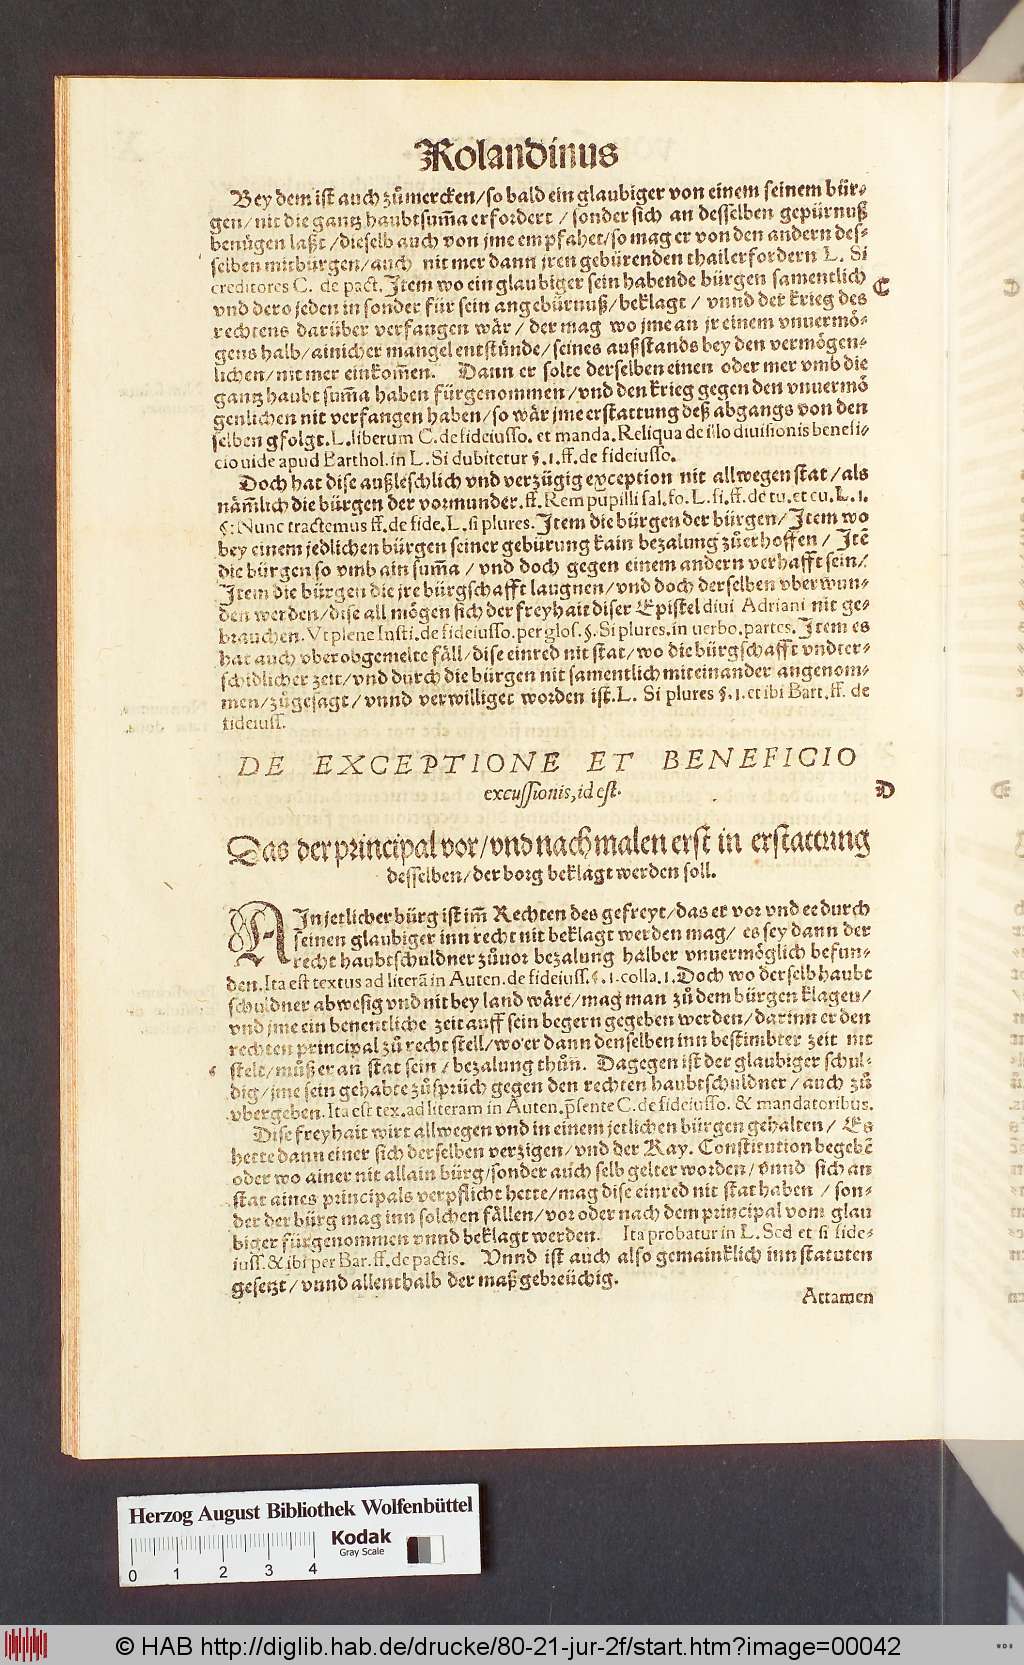 Rolandinus
Bey dem ist auch zůmercken/so bald ein glaubiger von einem seinem bür-
gen/nit die gantz haubtsum̃a erfordert / sonder sich an desselben gepürnuß
benügen laßt /dieselb auch von jme empfahet/so mag er von den andern des-
selben mitbürgen/auch nit mer dann jren gebürenden thail erfordern L. Si
creditores C. de pact. Item wo ein glaubiger sein habende bürgen samentlich
C
vnd dero jeden in sonder für sein angebürnuß/beklagt / vnnd der krieg des
rechtens darüber verfangen wär / der mag wo jme an jr einem vnuermö-
gens halb/ainicher mangel entstünde/seines außstands bey den vermögen-
lichen/nit mer einkom̃en. Dann er solte derselben einen oder mer vmb die
gantz haubt sum̃a haben fürgenommen/vnd den krieg gegen den vnuermö
genlichen nit verfangen haben/so wär jme erstattung deß abgangs von den
selben gfolgt. L. liberum C. de fideiusso. et manda. Reliqua de isto diuisionis benefi-
cio uide apud Barthol. in L. Si dubitetur §. 1. ff. de fideiusso.
Doch hat dise außleschlich vnd verzügig exception nit allwegen stat/als
näm̃lich die bürgen der vormunder. ff. Rem pupilli sal. fo. L. fi. ff. de tu. et cu. L. 1.
§: Nunc tractemus ff. de fide. L. si plures. Item die bürgen der bürgen/Item wo
bey einem jedlichen bürgen seiner gebürung kain bezalung zůerhoffen / Itẽ
die bürgen so vmb ain sum̃a / vnd doch gegen einem andern verhafft sein/
Item die bürgen die jre bürgschafft laugnen/vnd doch derselben vberwun-
den werden/dise all mögen sich der freyhait diser Epistel diui Adriani nit ge-
brauchen. Vt plene Insti. de fideiusso. per glos. §. Si plures. in uerbo. partes. Item es
hat auch vber obgemelte fäll/dise einred nit stat/wo die bürgschafft vndter-
schidlicher zeit/vnd durch die bürgen nit samentlich miteinander angenom-
men/zůgesagt/vnnd verwilliget worden ist. L. Si plures §. 1. et ibi Bart. ff. de
fideiuss.
DE EXCEPTIONE ET BENEFICIO
excussionis, id est.
D
Das der principal vor/vnd nachmalen erst in erstattung
desselben/der borg beklagt werden soll.
AIn jetlicher bürg ist im̃ Rechten des gefreyt/das er vor vnd ee durch
seinen glaubiger inn recht nit beklagt werden mag/ es sey dann der
recht haubtschuldner zůuor bezalung halber vnuermöglich befun-
den. Ita est textus ad literã in Auten. de fideiuss. §. 1. colla. 1. Doch wo derselb haubt
schuldner abwesig vnd nit bey land wäre/mag man zů dem bürgen klagen/
vnd jme ein benentliche zeit auff sein begern gegeben werden/darinn er den
rechten principal zů recht stell/wo er dann denselben inn bestimbter zeit nit
stelt/můß er an stat sein/bezalung thůn. Dagegen ist der glaubiger schul-
dig/jme sein gehabte zůsprüch gegen den rechten haubtschuldner/auch zů
vbergeben. Ita est tex. ad literam in Auten. p̃sente C. de fideiusso. & mandatoribus.
Dise freyhait wirt allwegen vnd in einem jetlichen bürgen gehalten/ Es
hette dann einer sich derselben verzigen/vnd der Kay. Constitution begebẽ
oder wo ainer nit allain bürg/sonder auch selb gelter worden/vnnd sich an
stat aines principals verpflicht hette/mag dise einred nit stat haben / son-
der der bürg mag inn solchen fällen/vor oder nach dem principal vom glau
biger fürgenommen vnnd beklagt werden. Ita probatur in L. Sed et si fide-
iuss. & ibi per Bar. ff. de pactis. Vnnd ist auch also gemainklich inn statuten
gesetzt/vnnd allenthalb der maß gebreüchig.
Attamen
Herzog August Bibliothek Wolfenbüttel
Kodak
Gray Scale
0 1 2 3 4
© HAB http://diglib.hab.de/drucke/80-21-jur-2f/start.htm?image=00042